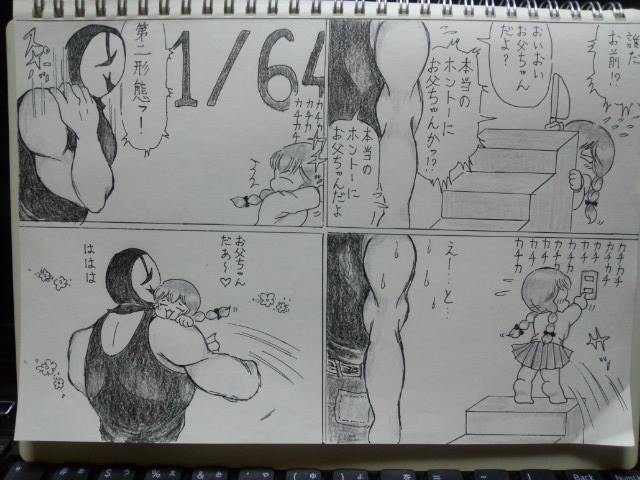 誰だ
お前!?
おいおい
お父ちゃん
だよ?
本当の
ホントーに
お父ちゃんかっ!?
本当の
ホントーに
お父ちゃんだよ
カチカチカチ
カチカチ
カチカチ
カチカチ
カチカチ
カチカチ
え…と…
1/64
カチカチ
カチカチ
第二形態ァ!
お父ちゃん
だぁ〜♡
ははは